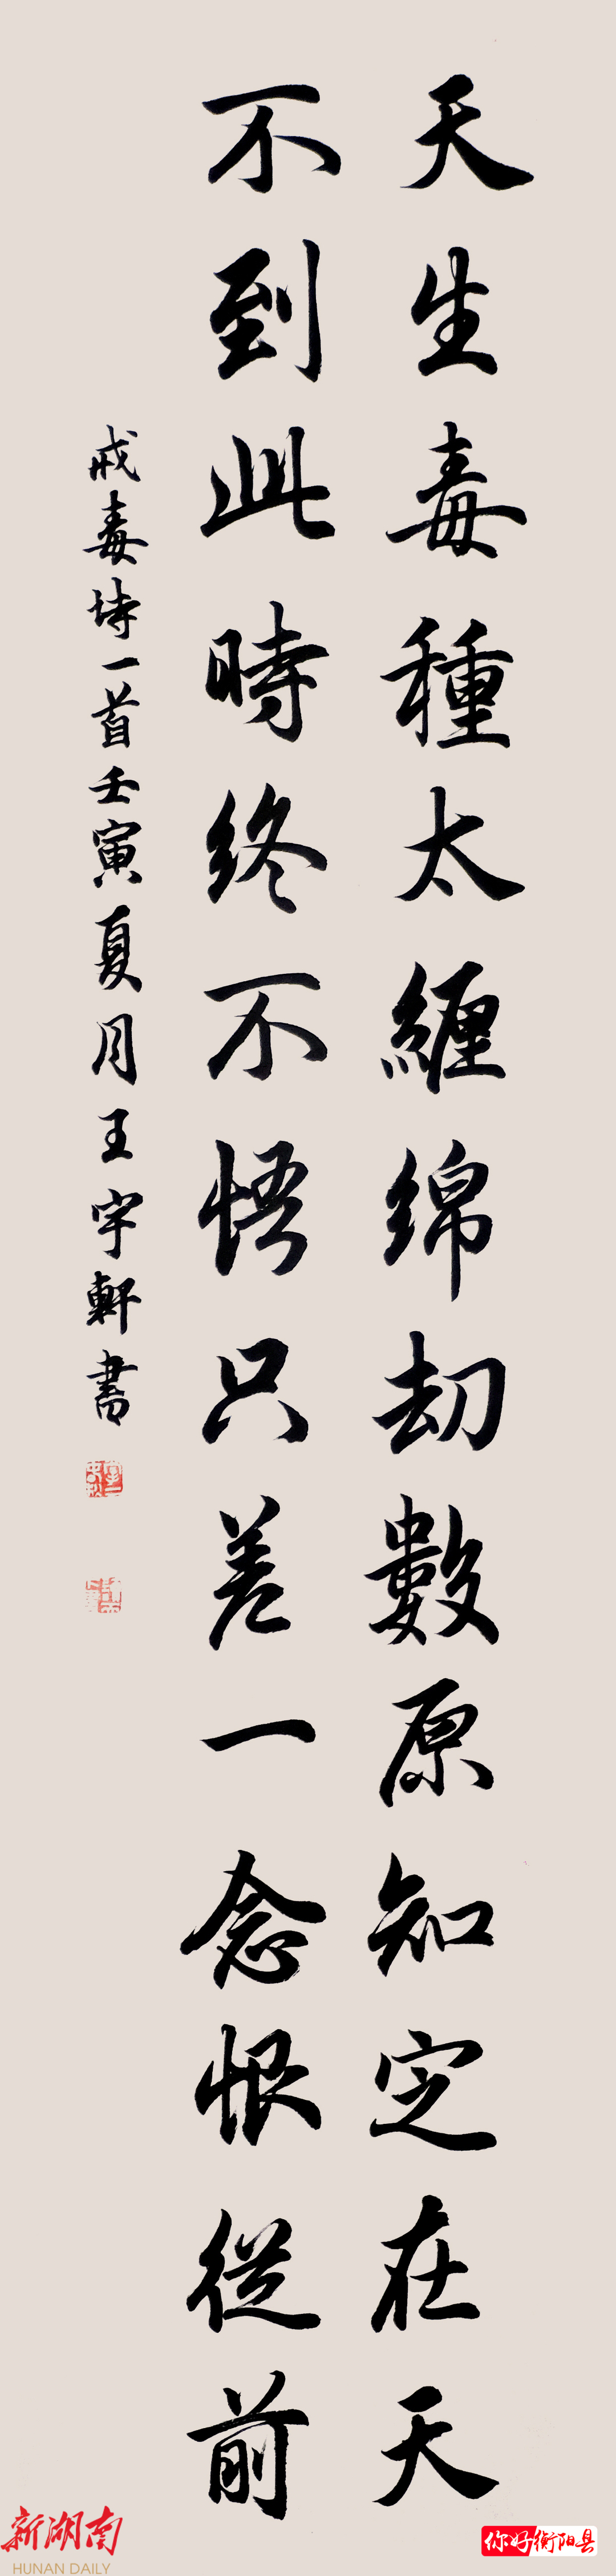 天生毒種太纏綿劫數原知定在天
不到此時终不悟只差一念恨從前
戒毒诗一首壬寅夏月王宇軒書
新湖南
HUNAN DAILY
你好衡阳县